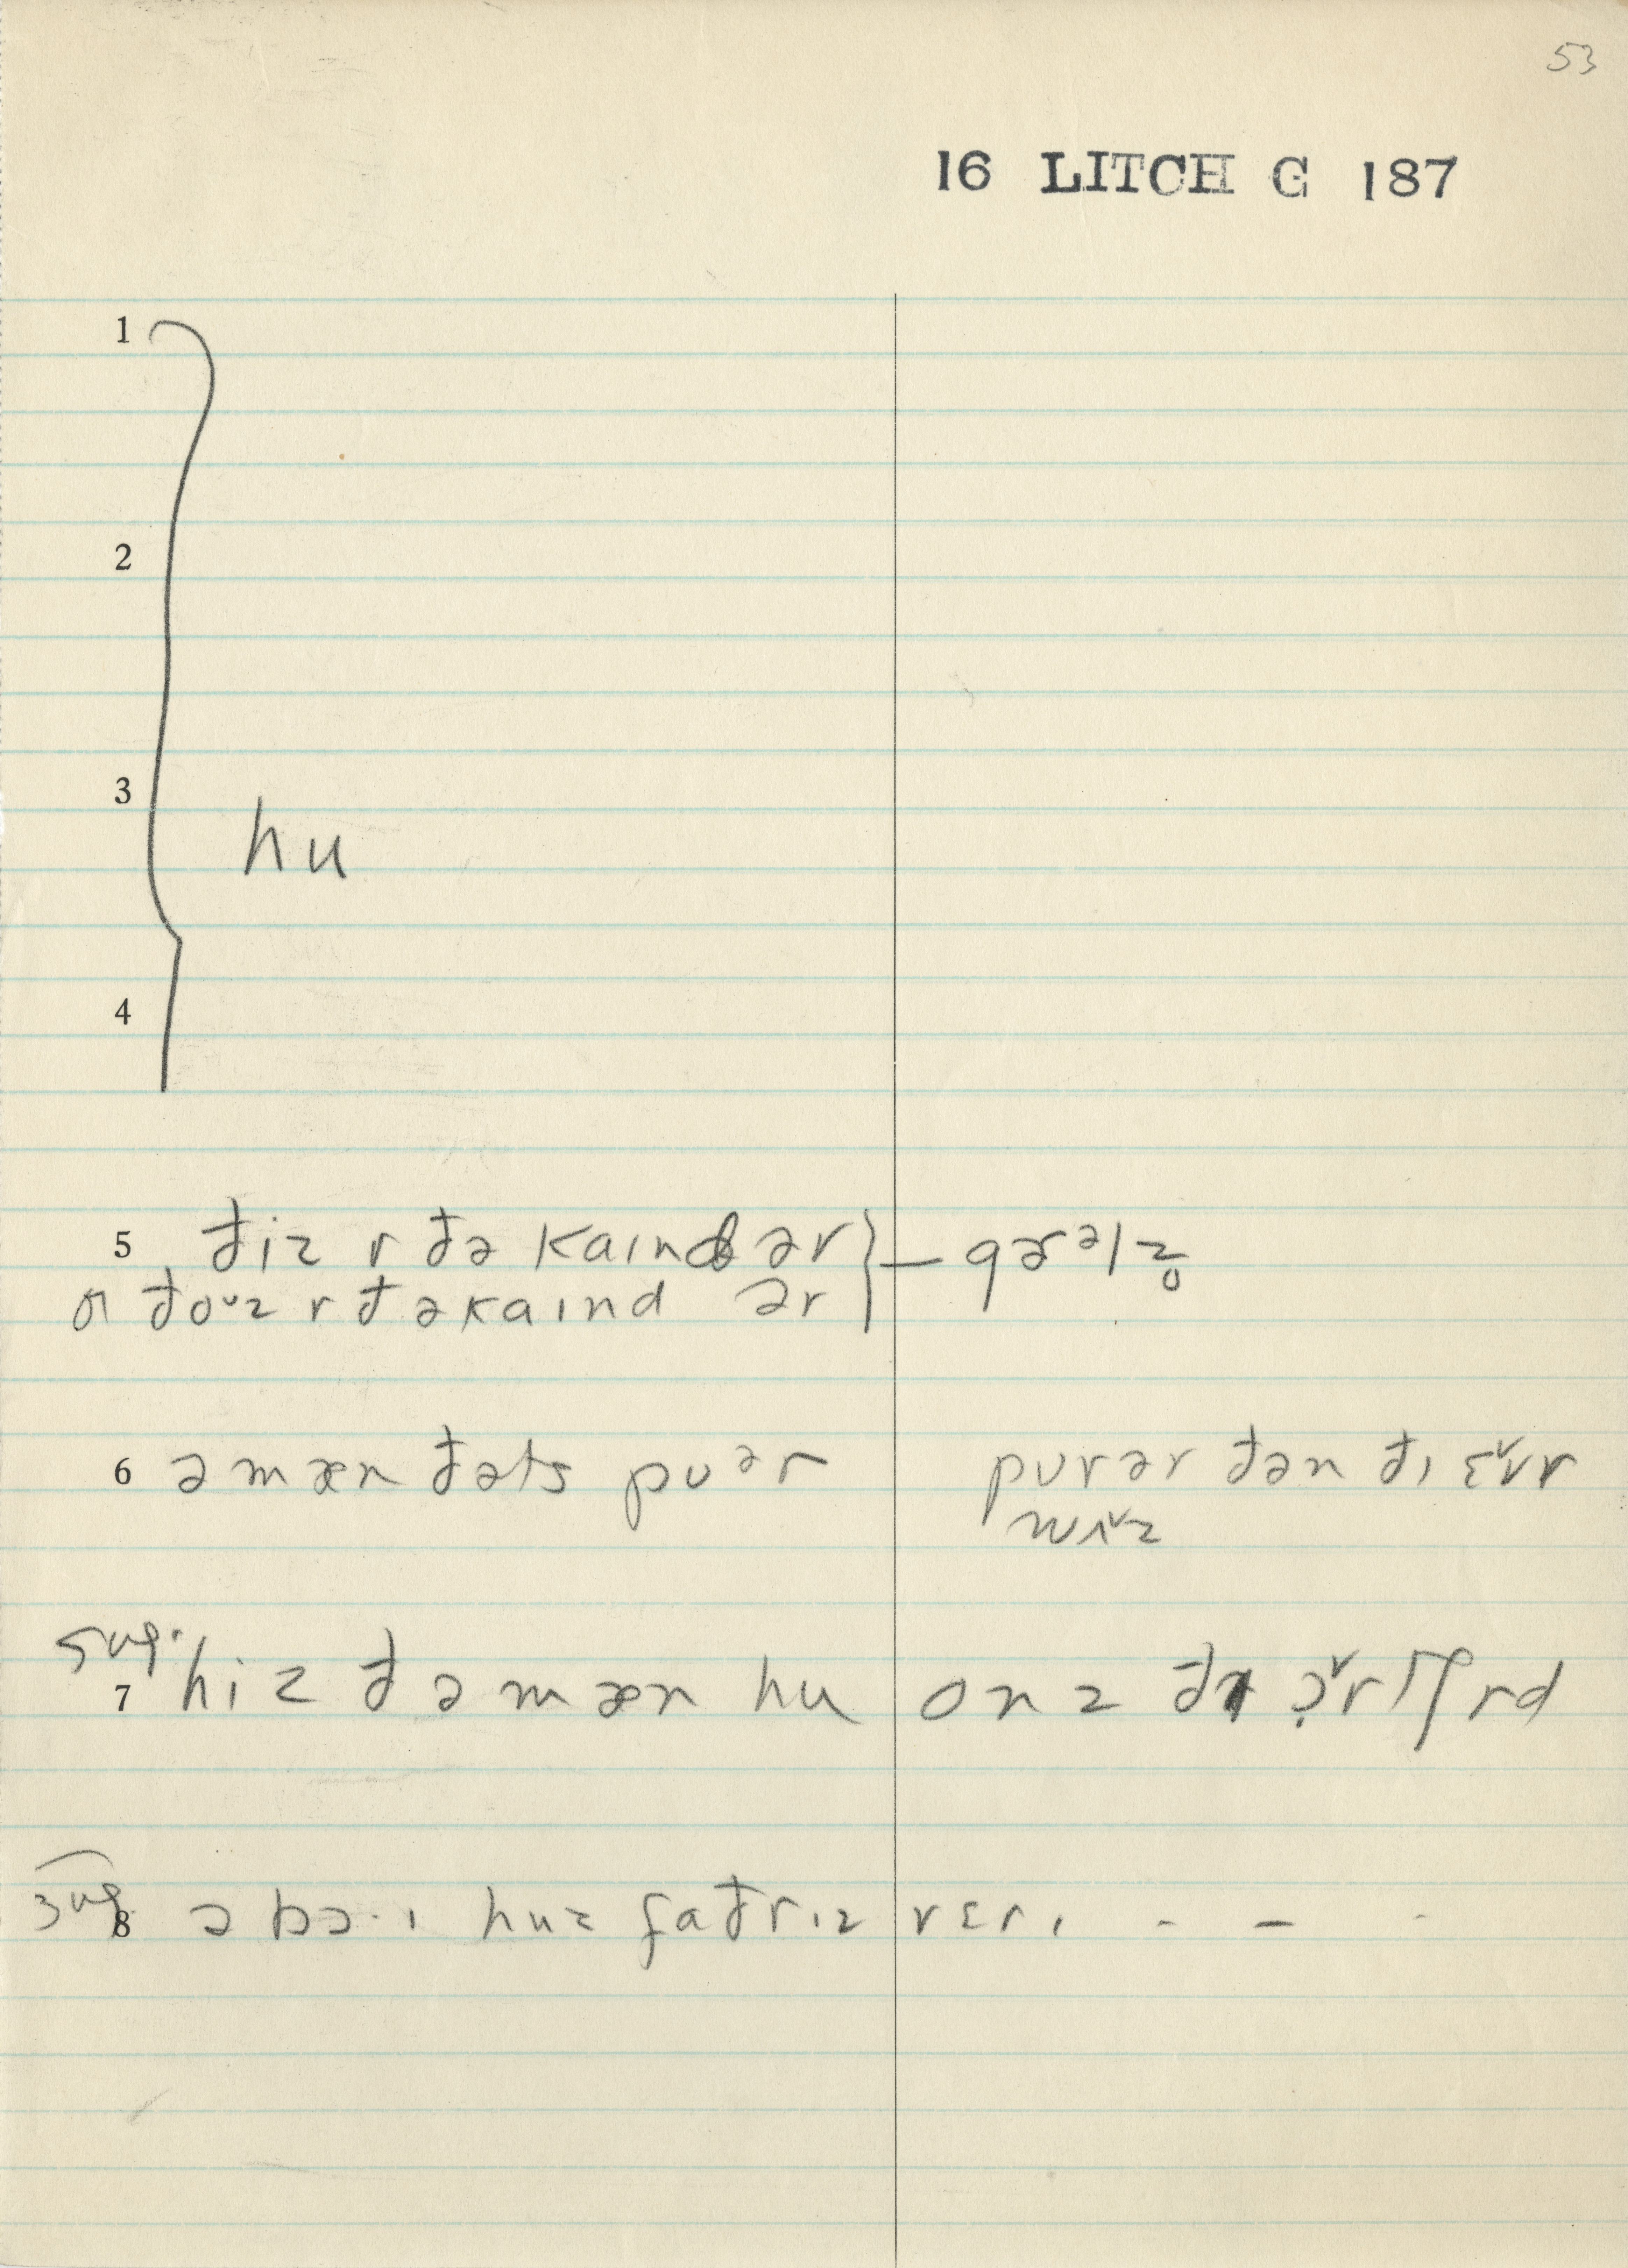 53
16 LITCH G 187
1
2
3
hu
4
5 điz r đə kaind ər } — gərəlz̥
đouz r đəkaind ər
6 əmæn đəts puər purər đən đɪ ɛvr
wʌz
sug.
7 hiz đəmæn hu onz đɪ
sug
8 ə bɔ·ɪ huz fađrɪz vɛrɪ - - -